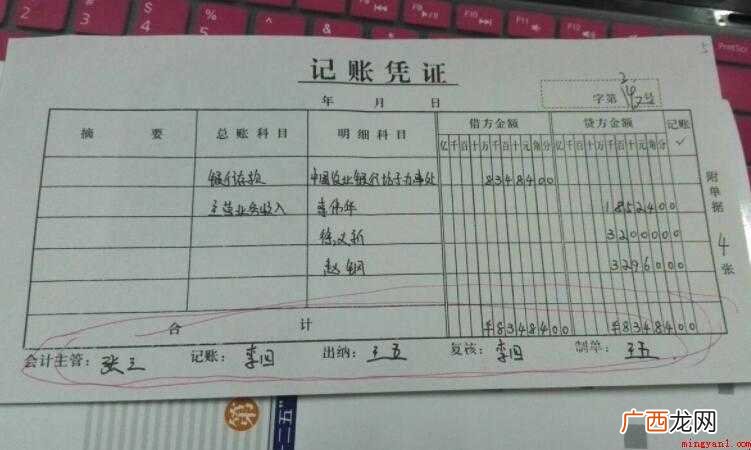 记账凭证
年 月 日
字第 号
摘要 总账科目 明细科目 借方金额 贷方金额 记账
亿千百十万千百十元角分 亿千百十万千百十元角分 ✓
银行存款 中国农业银行坫子办事处 8348400
主营业务收入 李伟年 1852400
徐义新 3200000
赵钢 3296000
附单据 4 张
合计 ¥8348400 ¥8348400
会计主管：张三 记账：李四 出纳：王五 复核：李四 制单：王五
第
二五"
广西龙网
mingyan1.com